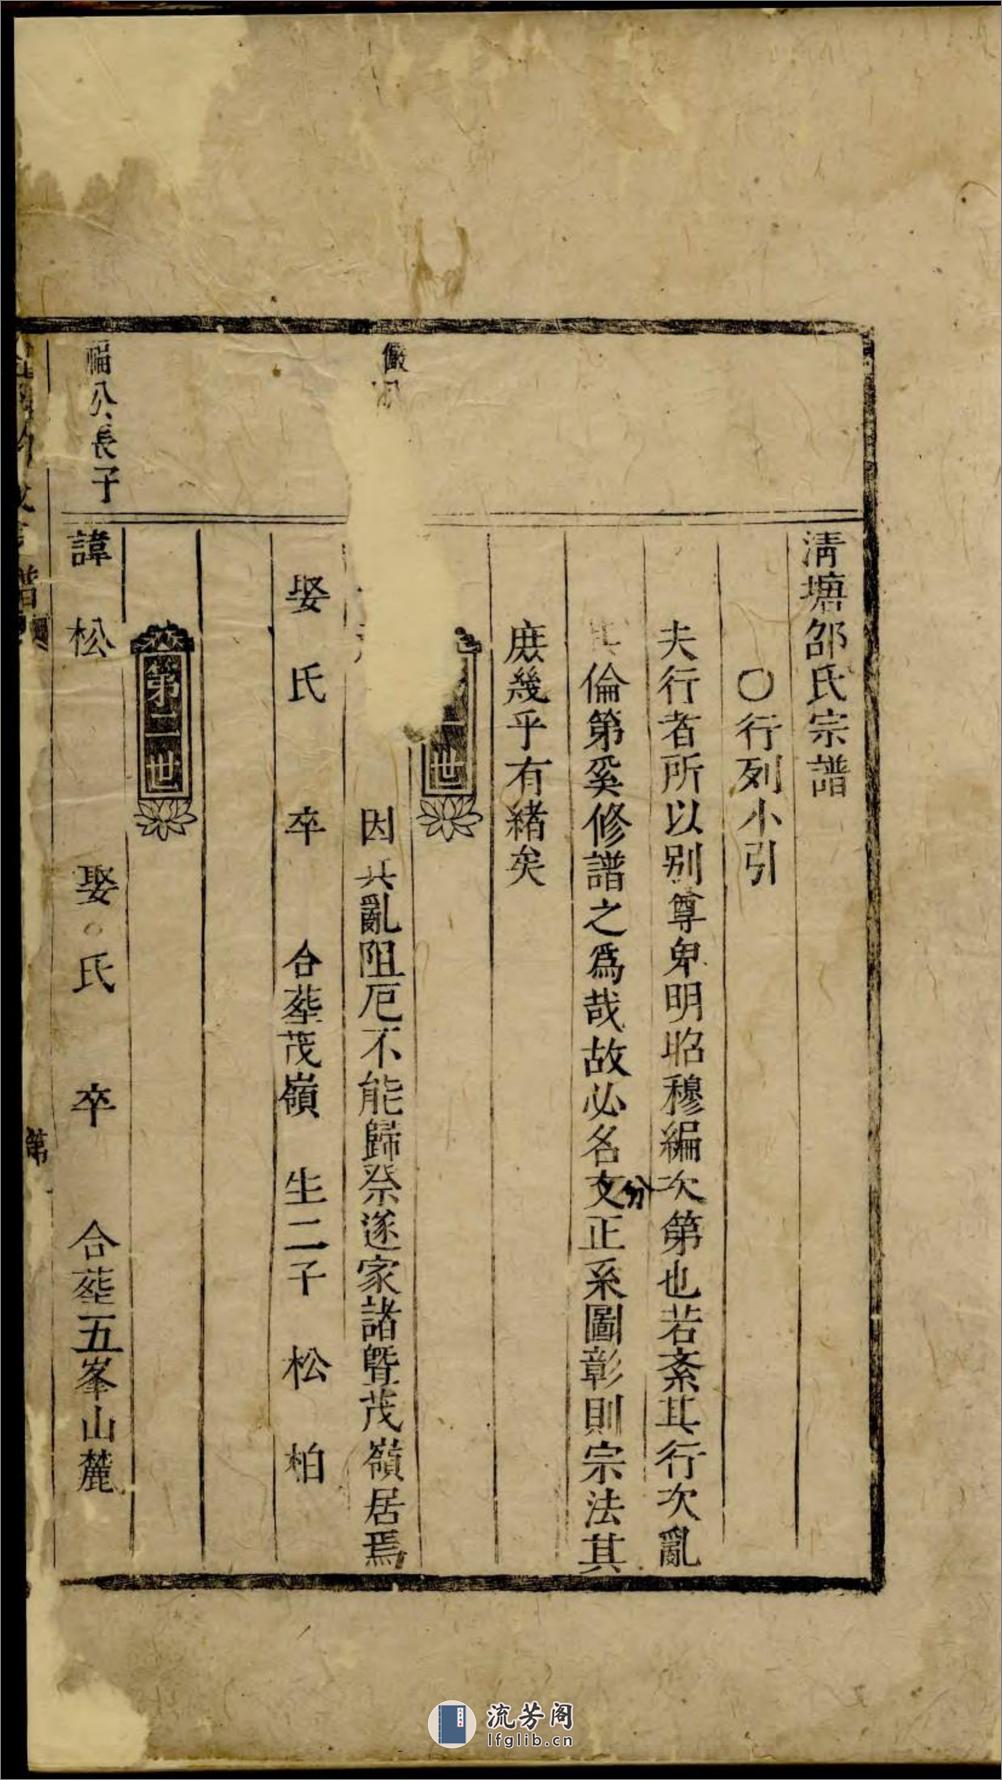 清塘邵氏宗譜
〇行列小引
夫行者所以别尊卑明昭穆編次第也若紊其行次亂
其倫第奚修譜之爲哉故必名分正系圖彰則宗法其
庶幾乎有緒矣
世
儼公
因兵亂阻厄不能歸祭遂家諸曁茂嶺居焉
娶 氏 卒 合塟茂嶺 生二子 松 柏
第二世
福公長子
諱松 娶〇氏 卒 合塟五峯山麓
譜
第
流芳阁
lfglib.cn